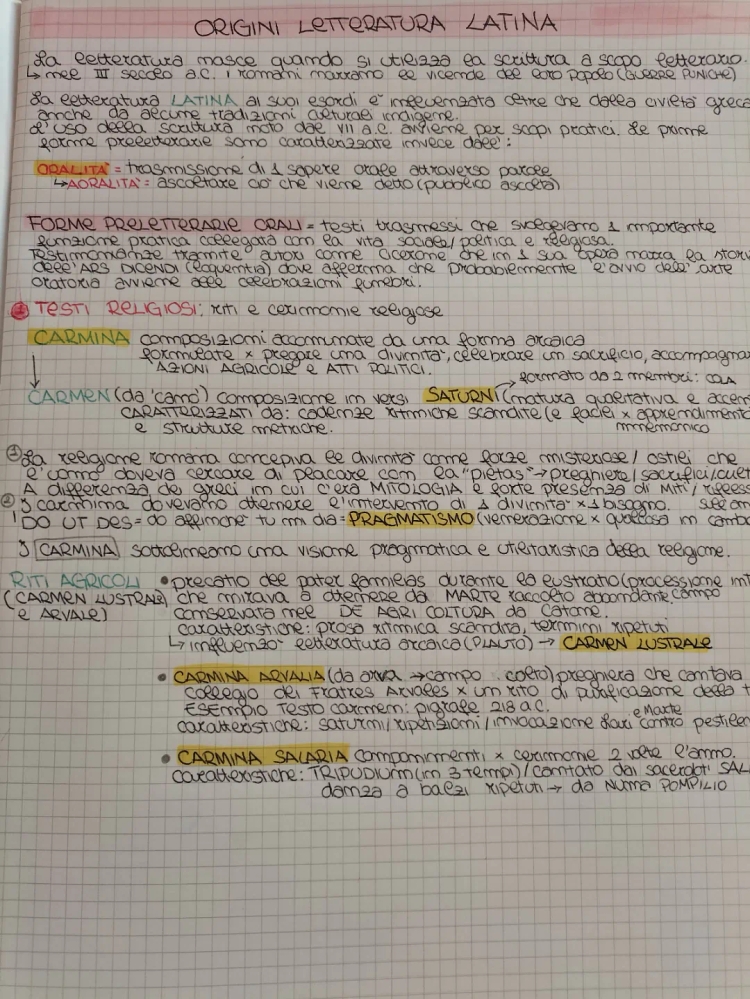 ORIGINI LETTERATURA LATINA
La letteratura nasce quando si utilizza la scrittura a scopo letterario.
↳ nel III secolo a.C. i romani narrano le vicende del loro popolo (GUERRE PUNICHE)
La letteratura LATINA ai suoi esordi e' influenzata oltre che dalla civiltà greca
anche da alcune tradizioni culturali indigene.
L'uso della scrittura noto dal VII a.C. avviene per scopi pratici. Le prime
forme preletterarie sono caratterizzate invece dall':
ORALITA' = trasmissione di 1 sapere orale attraverso parole
↳ AORALITA' = ascoltare ciò che viene detto (pubblico ascolta)
FORME PRELETTERARIE ORALI = testi trasmessi che svolgevano 1 importante
funzione pratica collegata con la vita sociale/politica e religiosa.
Testimonianze tramite autori come Cicerone che in 1 sua opera narra la stori
dell'ARS DICENDI (eloquentia) dove afferma che probabilmente l'avvio dell'arte
oratoria avviene alle celebrazioni funebri.
TESTI RELIGIOSI: riti e cerimonie religiose
CARMINA composizioni accomunate da una forma arcaica
formulate x pregare una divinita', celebrare un sacrificio, accompagna
AZIONI AGRICOLE e ATTI POLITICI.
→ formato da 2 membri: COLA
CARMEN (da 'cano') composizione in versi SATURNI (natura qualitativa e accen
CARATTERIZZATI da: cadenze ritmiche scandite (e facili x apprendimento
e strutture metriche. mnemonico
① La religione romana concepiva le divinità come forze misteriose/ostili che
l'uomo doveva cercare di placare con la "pietas" → preghiere/sacrifici/cult
A differenza dei greci in cui c'era MITOLOGIA e forte presenza di Miti/rifless
② I carmina dovevano ottenere l'intervento di 1 divinita' x 1 bisogno.
'DO UT DES = do affinche' tu mi dia = PRAGMATISMO (venerazione x qualcosa in camb
I CARMINA sottolineano una visione pragmatica e utilitaristica della religione.
RITI AGRICOLI • precatio del pater familias durante la lustratio (processione int
(CARMEN LUSTRALE che mirava a ottenere da MARTE raccolto abbondante, campo
e ARVALE) conservata nel DE AGRI COLTURA da Catone.
caratteristiche: prosa ritmica scandita, termini ripetuti
↳ influenzo' letteratura arcaica (PLAUTO) → CARMEN LUSTRALE
• CARMINA ARVALIA (da arva → campo colto) preghiera che cantava
collegio dei Fratres Arvales x un rito di purificazione della t
ESEMPIO Testo carmen: pigrafe 218 a.C.
caratteristiche: saturni/ripetizioni/invocazione Lari e Marte contro pestilen
• CARMINA SALARIA componimenti x cerimonie 2 volte l'anno.
caratteristiche: TRIPUDIUM (in 3 tempi)/cantato dai sacerdoti SAL
danza a balzi ripetuti → da NUMA POMPILIO